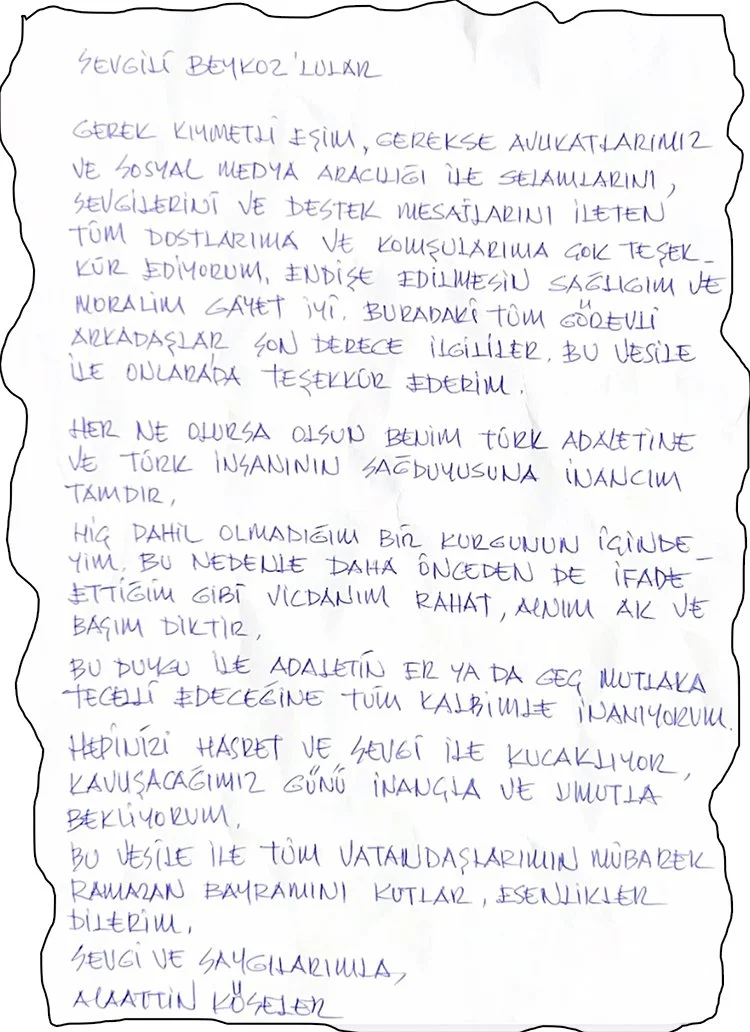 SEVGİLİ BEYKOZ'LULAR
GEREK KIYMETLİ EŞİM, GEREKSE AVUKATLARIMIZ
VE SOSYAL MEDYA ARACILIĞI İLE SELAMLARINI,
SEVGİLERİNİ VE DESTEK MESAJLARINI İLETEN
TÜM DOSTLARIMA VE KOMŞULARIMA ÇOK TEŞEK-
KÜR EDİYORUM. ENDİŞE EDİLMESİN SAĞLIĞIM VE
MORALİM GAYET İYİ. BURADAKİ TÜM GÖREVLİ
ARKADAŞLAR SON DERECE İLGİLİLER. BU VESİLE
İLE ONLARA'DA TEŞEKKÜR EDERİM.
HER NE OLURSA OLSUN BENİM TÜRK ADALETİNE
VE TÜRK İNSANININ SAĞDUYUSUNA İNANCIM
TAMDIR,
HİÇ DAHİL OLMADIĞIM BİR KURGUNUN İÇİNDE-
YİM. BU NEDENLE DAHA ÖNCEDEN DE İFADE
ETTİĞİM GİBİ VİCDANIM RAHAT, ALNIM AK VE
BAŞIM DİKTİR,
BU DUYGU İLE ADALETİN ER YA DA GEÇ MUTLAKA
TECELLİ EDECEĞİNE TÜM KALBİMLE İNANIYORUM.
HEPİNİZİ HASRET VE SEVGİ İLE KUCAKLIYOR,
KAVUŞACAĞIMIZ GÜNÜ İNANÇLA VE UMUTLA
BEKLİYORUM.
BU VESİLE İLE TÜM VATANDAŞLARIMIN MÜBAREK
RAMAZAN BAYRAMINI KUTLAR, ESENLİKLER
DİLERİM.
SEVGİ VE SAYGILARIMLA,
ALAATTİN KÖSELER